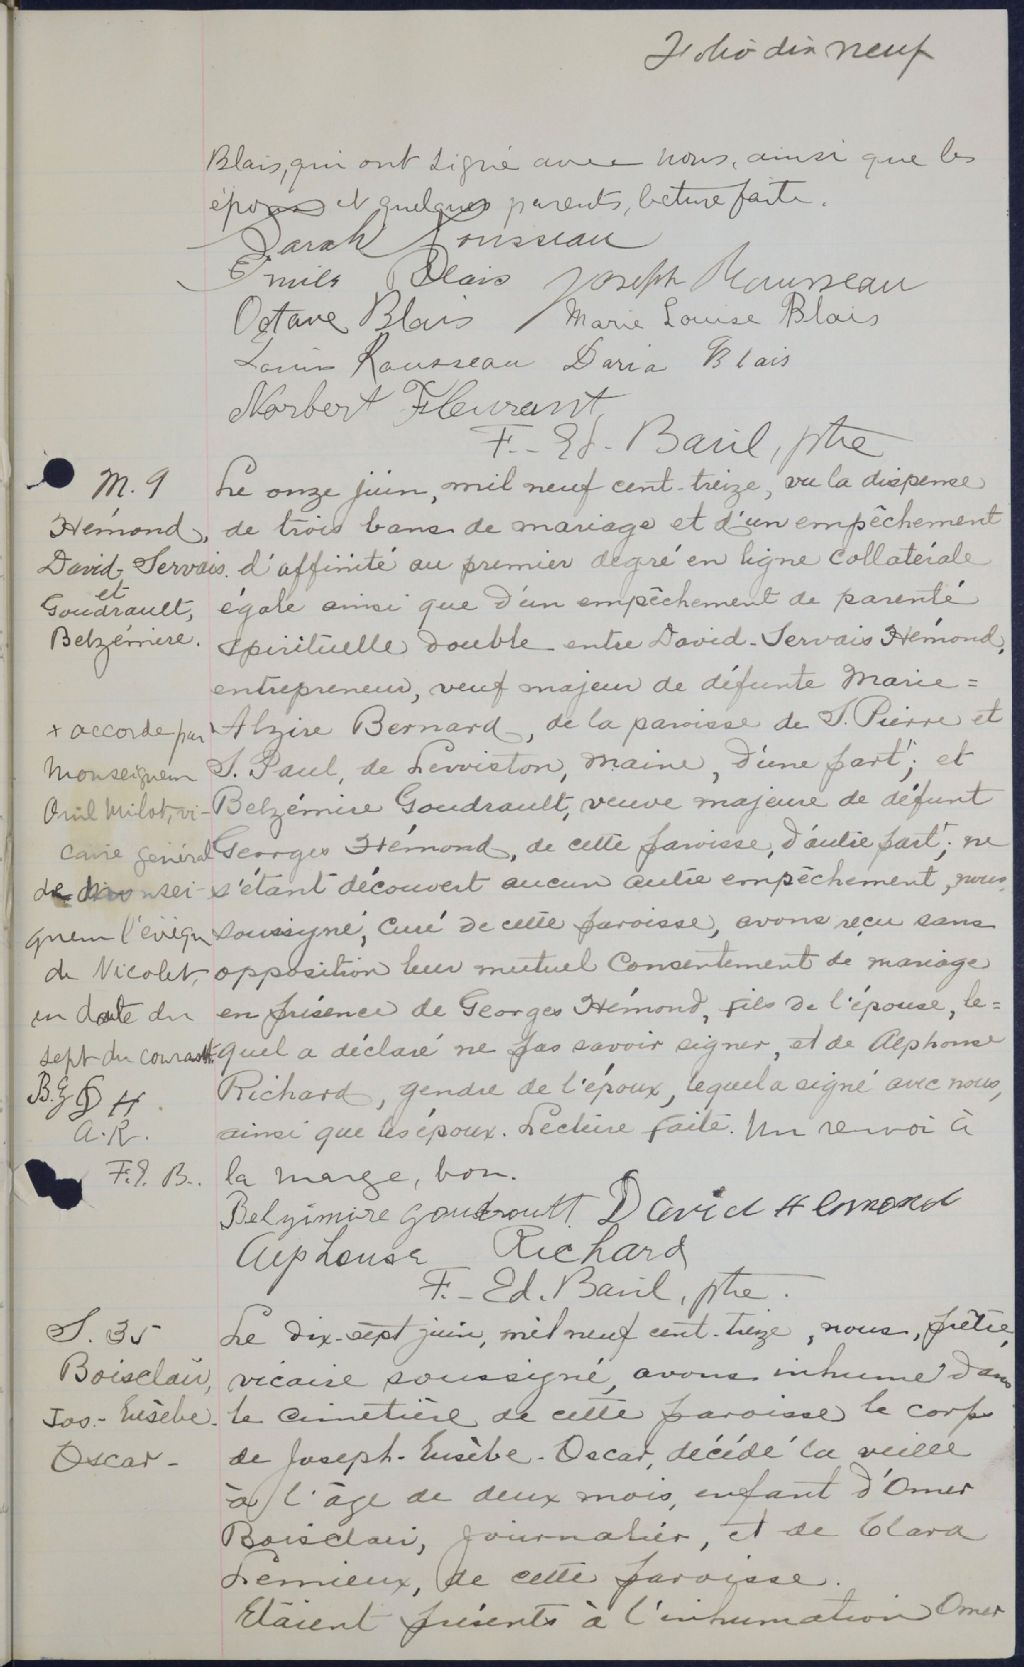 Folio dix neuf
Blais, qui ont signé avec nous, ainsi que les
époux et quelques parents, lecture faite.
Sarah Rousseau
Emile Blais Joseph Rousseau
Octave Blais Marie Louise Blais
Louis Rousseau Daria Blais
Norbert Fleurant
F.- Ed. Baril, ptre
M. 9
Hémond,
David-Servais
et
Goudrault,
Belzémire.
Le onze juin, mil neuf cent-treize, vu la dispense
de trois bans de mariage et d'un empêchement
d'affinité au premier degré en ligne collatérale
égale ainsi que d'un empêchement de parenté
spirituelle double entre David-Servais Hémond,
entrepreneur, veuf majeur de défunte Marie=
Alzire Bernard, de la paroisse de S. Pierre et
S. Paul, de Lewiston, Maine, d'une part; et
Belzémire Goudrault, veuve majeure de défunt
Georges Hémond, de cette paroisse, d'autre part; ne
s'étant découvert aucun autre empêchement, nous,
soussigné, curé de cette paroisse, avons reçu sans
opposition leur mutuel consentement de mariage
en présence de Georges Hémond, fils de l'épouse, le=
quel a déclaré ne pas savoir signer, et de Alphonse
Richard, gendre de l'époux, lequel a signé avec nous,
ainsi que les époux. Lecture faite. Un renvoi à
la marge, bon.
+ accordé par
Monseigneur
Milot, vi-
caire général
de Monsei-
gneur l'évêque
de Nicolet,
en date du
sept du courant.
B. G D H
A. R.
F. E. B.
Belzimire Goudroult David Hemond
Alphonse Richard
F.- Ed. Baril, ptre.
S. 35
Boisclair,
Jos.- Eusèbe-
Oscar-
Le dix-sept juin, mil neuf cent-treize, nous, prêtre,
vicaire soussigné, avons inhumé dans
le cimetière de cette paroisse le corps
de Joseph-Eusèbe-Oscar, décédé la veille
à l'âge de deux mois, enfant d'Omer
Boisclair, journalier, et de Clara
Lemieux, de cette paroisse.
Etaient présents à l'inhumation Omer